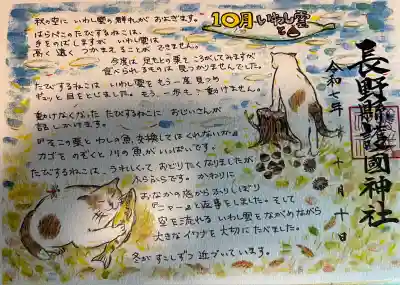 10月 いわし雲
秋の空に いわし雲の群れが およぎます。
はらぺこの たびするねこは、
手をのばしますが いわし雲は
高く遠く つかまえることが できません。
今度は 足もとの栗を ころがしてみますが
食べられるものは 見つかりませんでした。
たびするねこは いわし雲をもう一度見つめ
ギュッと目をとじました。もう、一歩も動けません。
動けなくなった たびするねこに おじいさんが
話しかけます。
『その栗と わしの魚、交換してはくれないか』
カゴをのぞくと 川の魚がいっぱいです。
たびするねこは、うれしくて おどりたくなりましたが
ふらふらです。かわりに
おなかの底からふりしぼり
『ニャーー』と返事をしました。そして
空を流れる いわし雲を ながめながら
大きなイワナを 大切に たべました。
冬が すこしずつ 近づいています。
長野縣護國神社
令和七年 十月十日